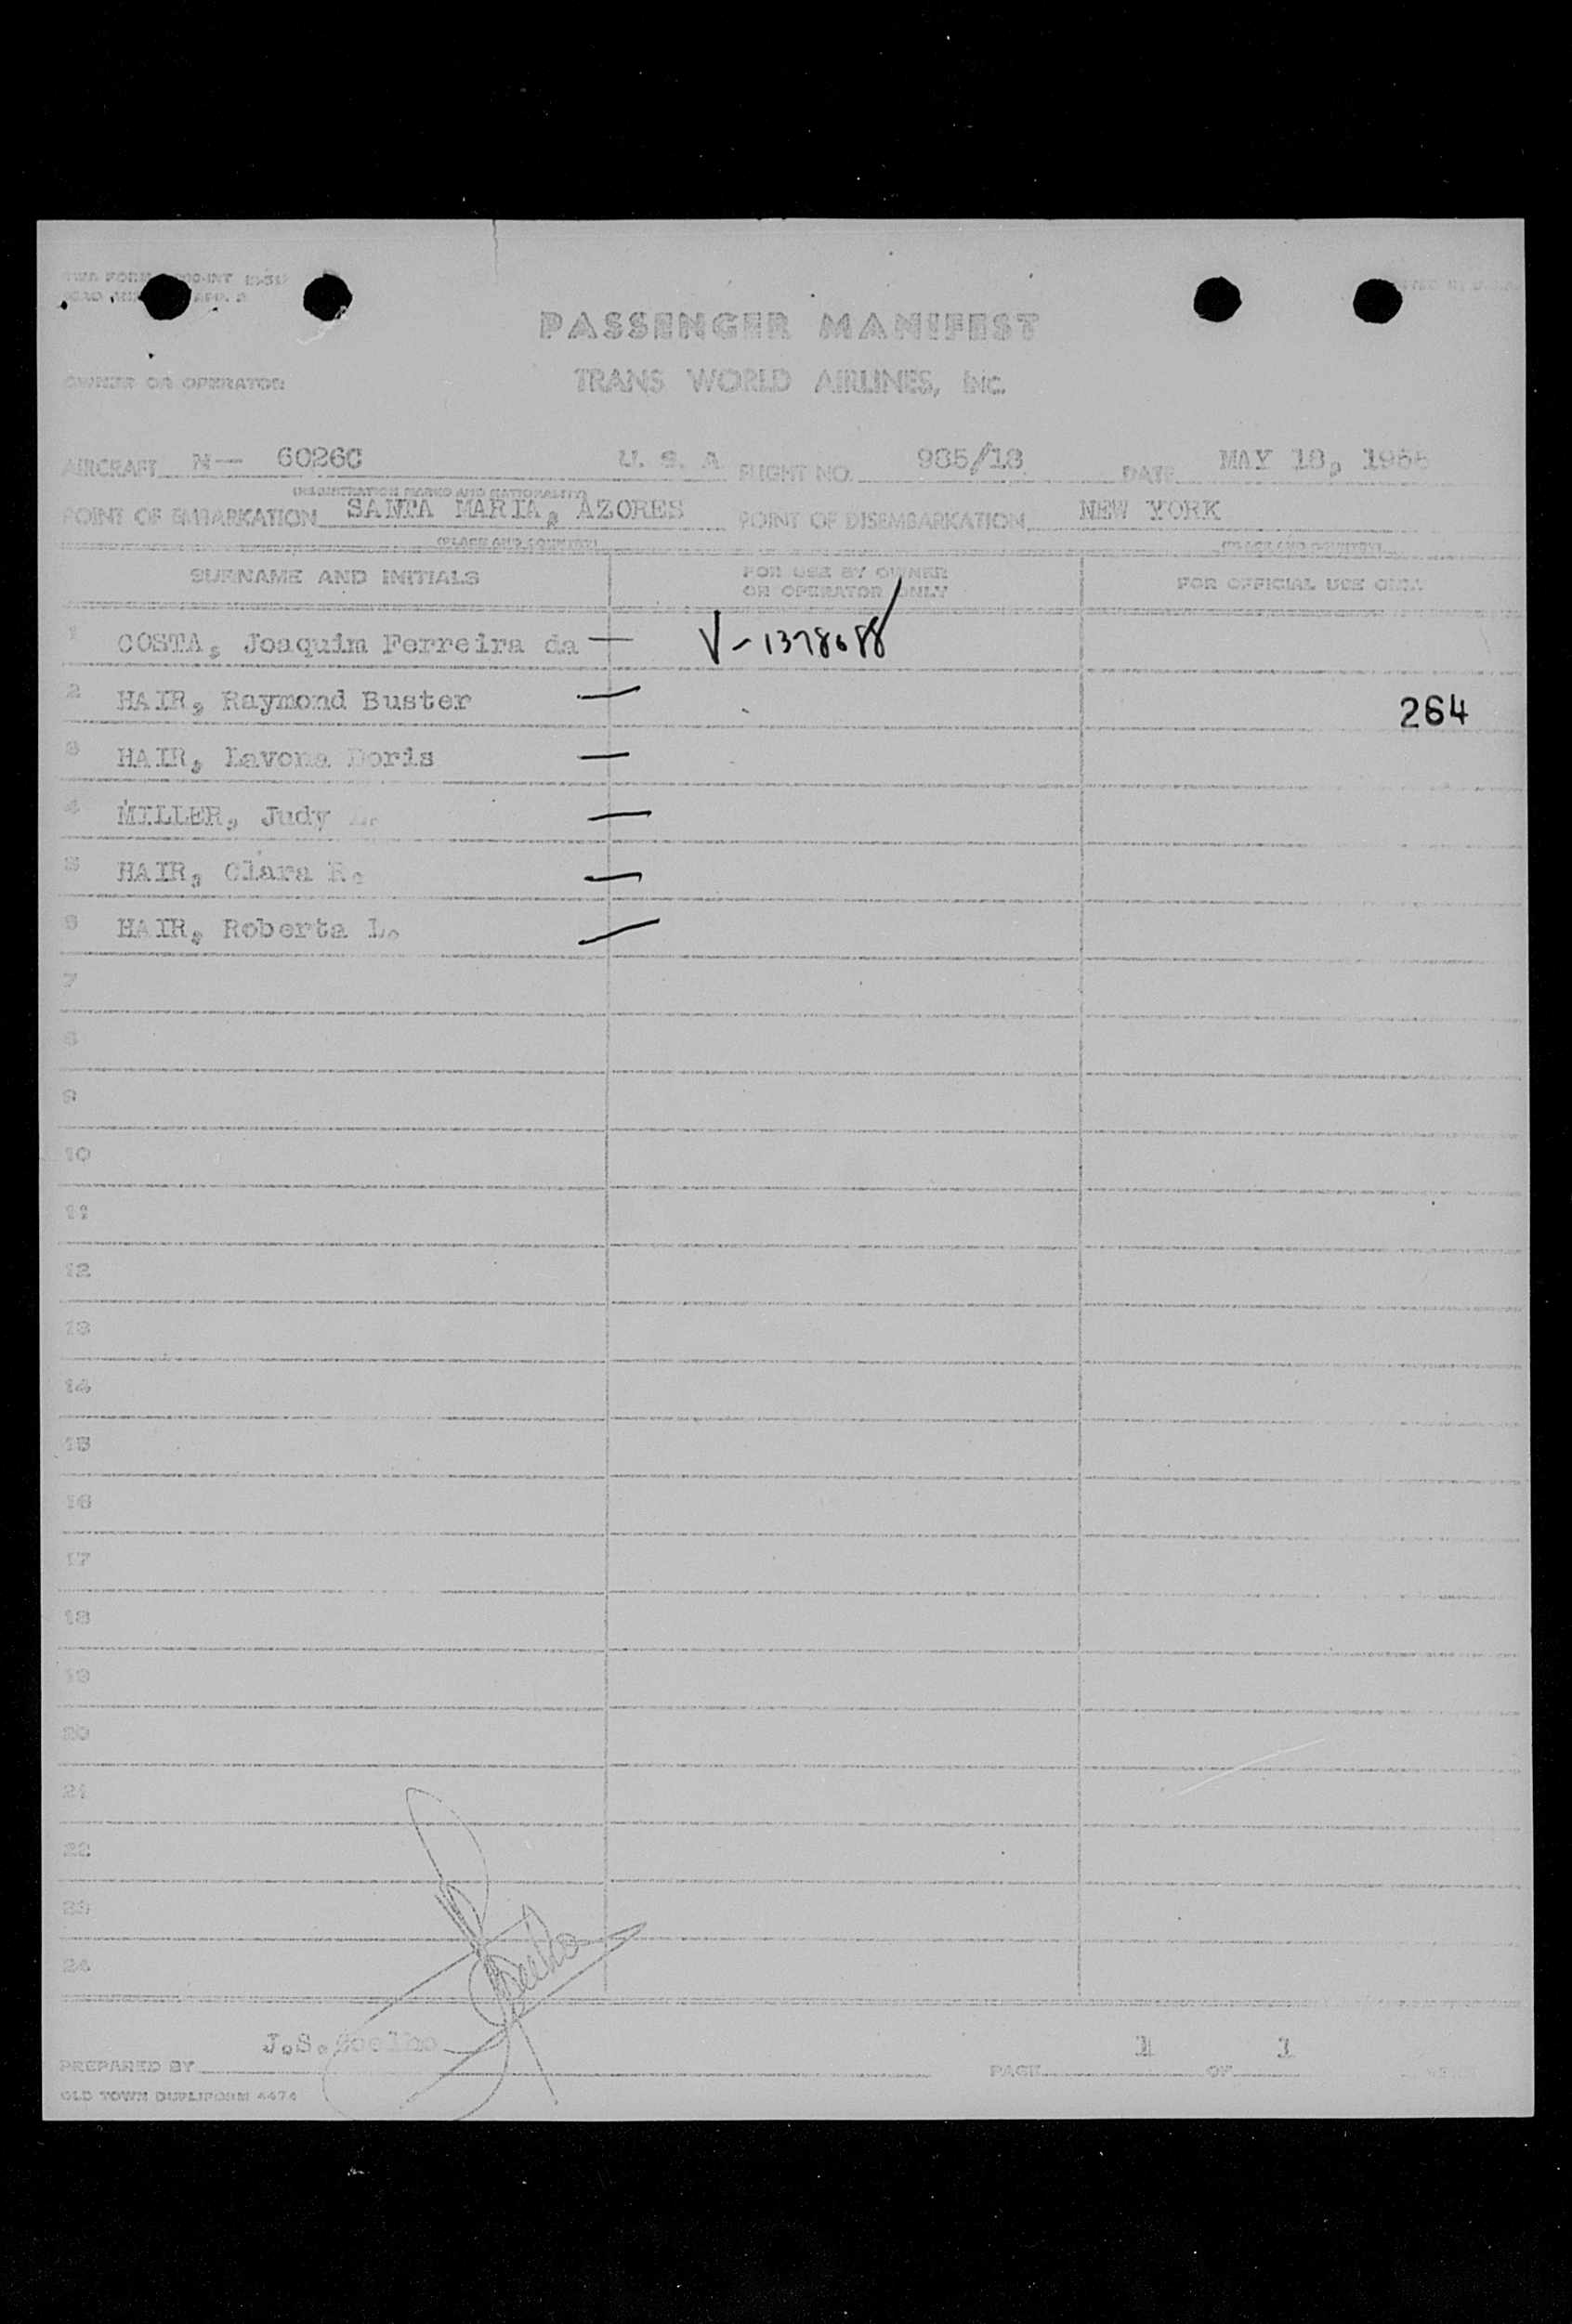 PASSENGER MANIFEST
OWNER OR OPERATOR
TRANS WORLD AIRLINES, INC.
AIRCRAFT N— 6026C U. S. A FLIGHT NO. 985/18 DATE MAY 18, 1955
(REGISTRATION MARKS AND NATIONALITY)
POINT OF EMBARKATION SANTA MARIA, AZORES POINT OF DISEMBARKATION NEW YORK
(PLACE AND COUNTRY) (PLACE AND COUNTRY)
SURNAME AND INITIALS FOR USE BY OWNER OR OPERATOR ONLY FOR OFFICIAL USE ONLY
1 COSTA, Joaquim Ferreira da — V-1378688
2 HAIR, Raymond Buster — 264
3 HAIR, Lavona Doris —
4 MILLER, Judy —
5 HAIR, Clara R. —
6 HAIR, Roberta L. —
7
8
9
10
11
12
13
14
15
16
17
18
19
20
21
22
23
24
J.S.Coelho
PREPARED BY PAGE 1 OF 1
OLD TOWN DUPLIFORM 4474